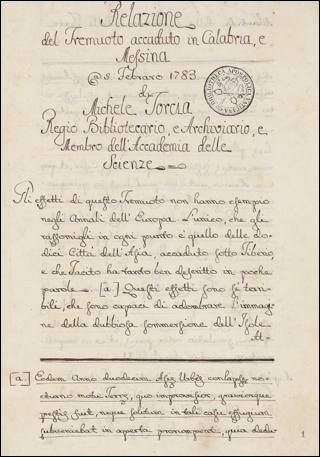 Relazione
del Tremuoto accaduto in Calabria, e
Messina
a 5. Febraro 1783
di
Michele Torcia
Regio Bibliotecario, e Archiviario, e
Membro dell'Accademia delle
Scienze
Gli effetti di questo Tremuoto non hanno esempio
negli Annali dell'Europa. L'unico, che gli
rassomigli in ogni punto è quello delle do-
dici Città dell'Asia, accaduto sotto Tiberio,
e che Tacito ha tanto ben descritto in poche
parole. [a] Questi effetti sono sì terri-
bili, che sono capaci di adombrare l'immagi-
ne della dubbiosa sommersione dell'Isole
Att-
[a.] Eodem Anno duodecim Asiæ Urbes conlapsæ no-
cturno motu Terræ, quo improvisior, graviorque
pestis fuit, neque solitum in tali casu effugium
subveniebat in aperta prorumpendi, quia dedu-
1